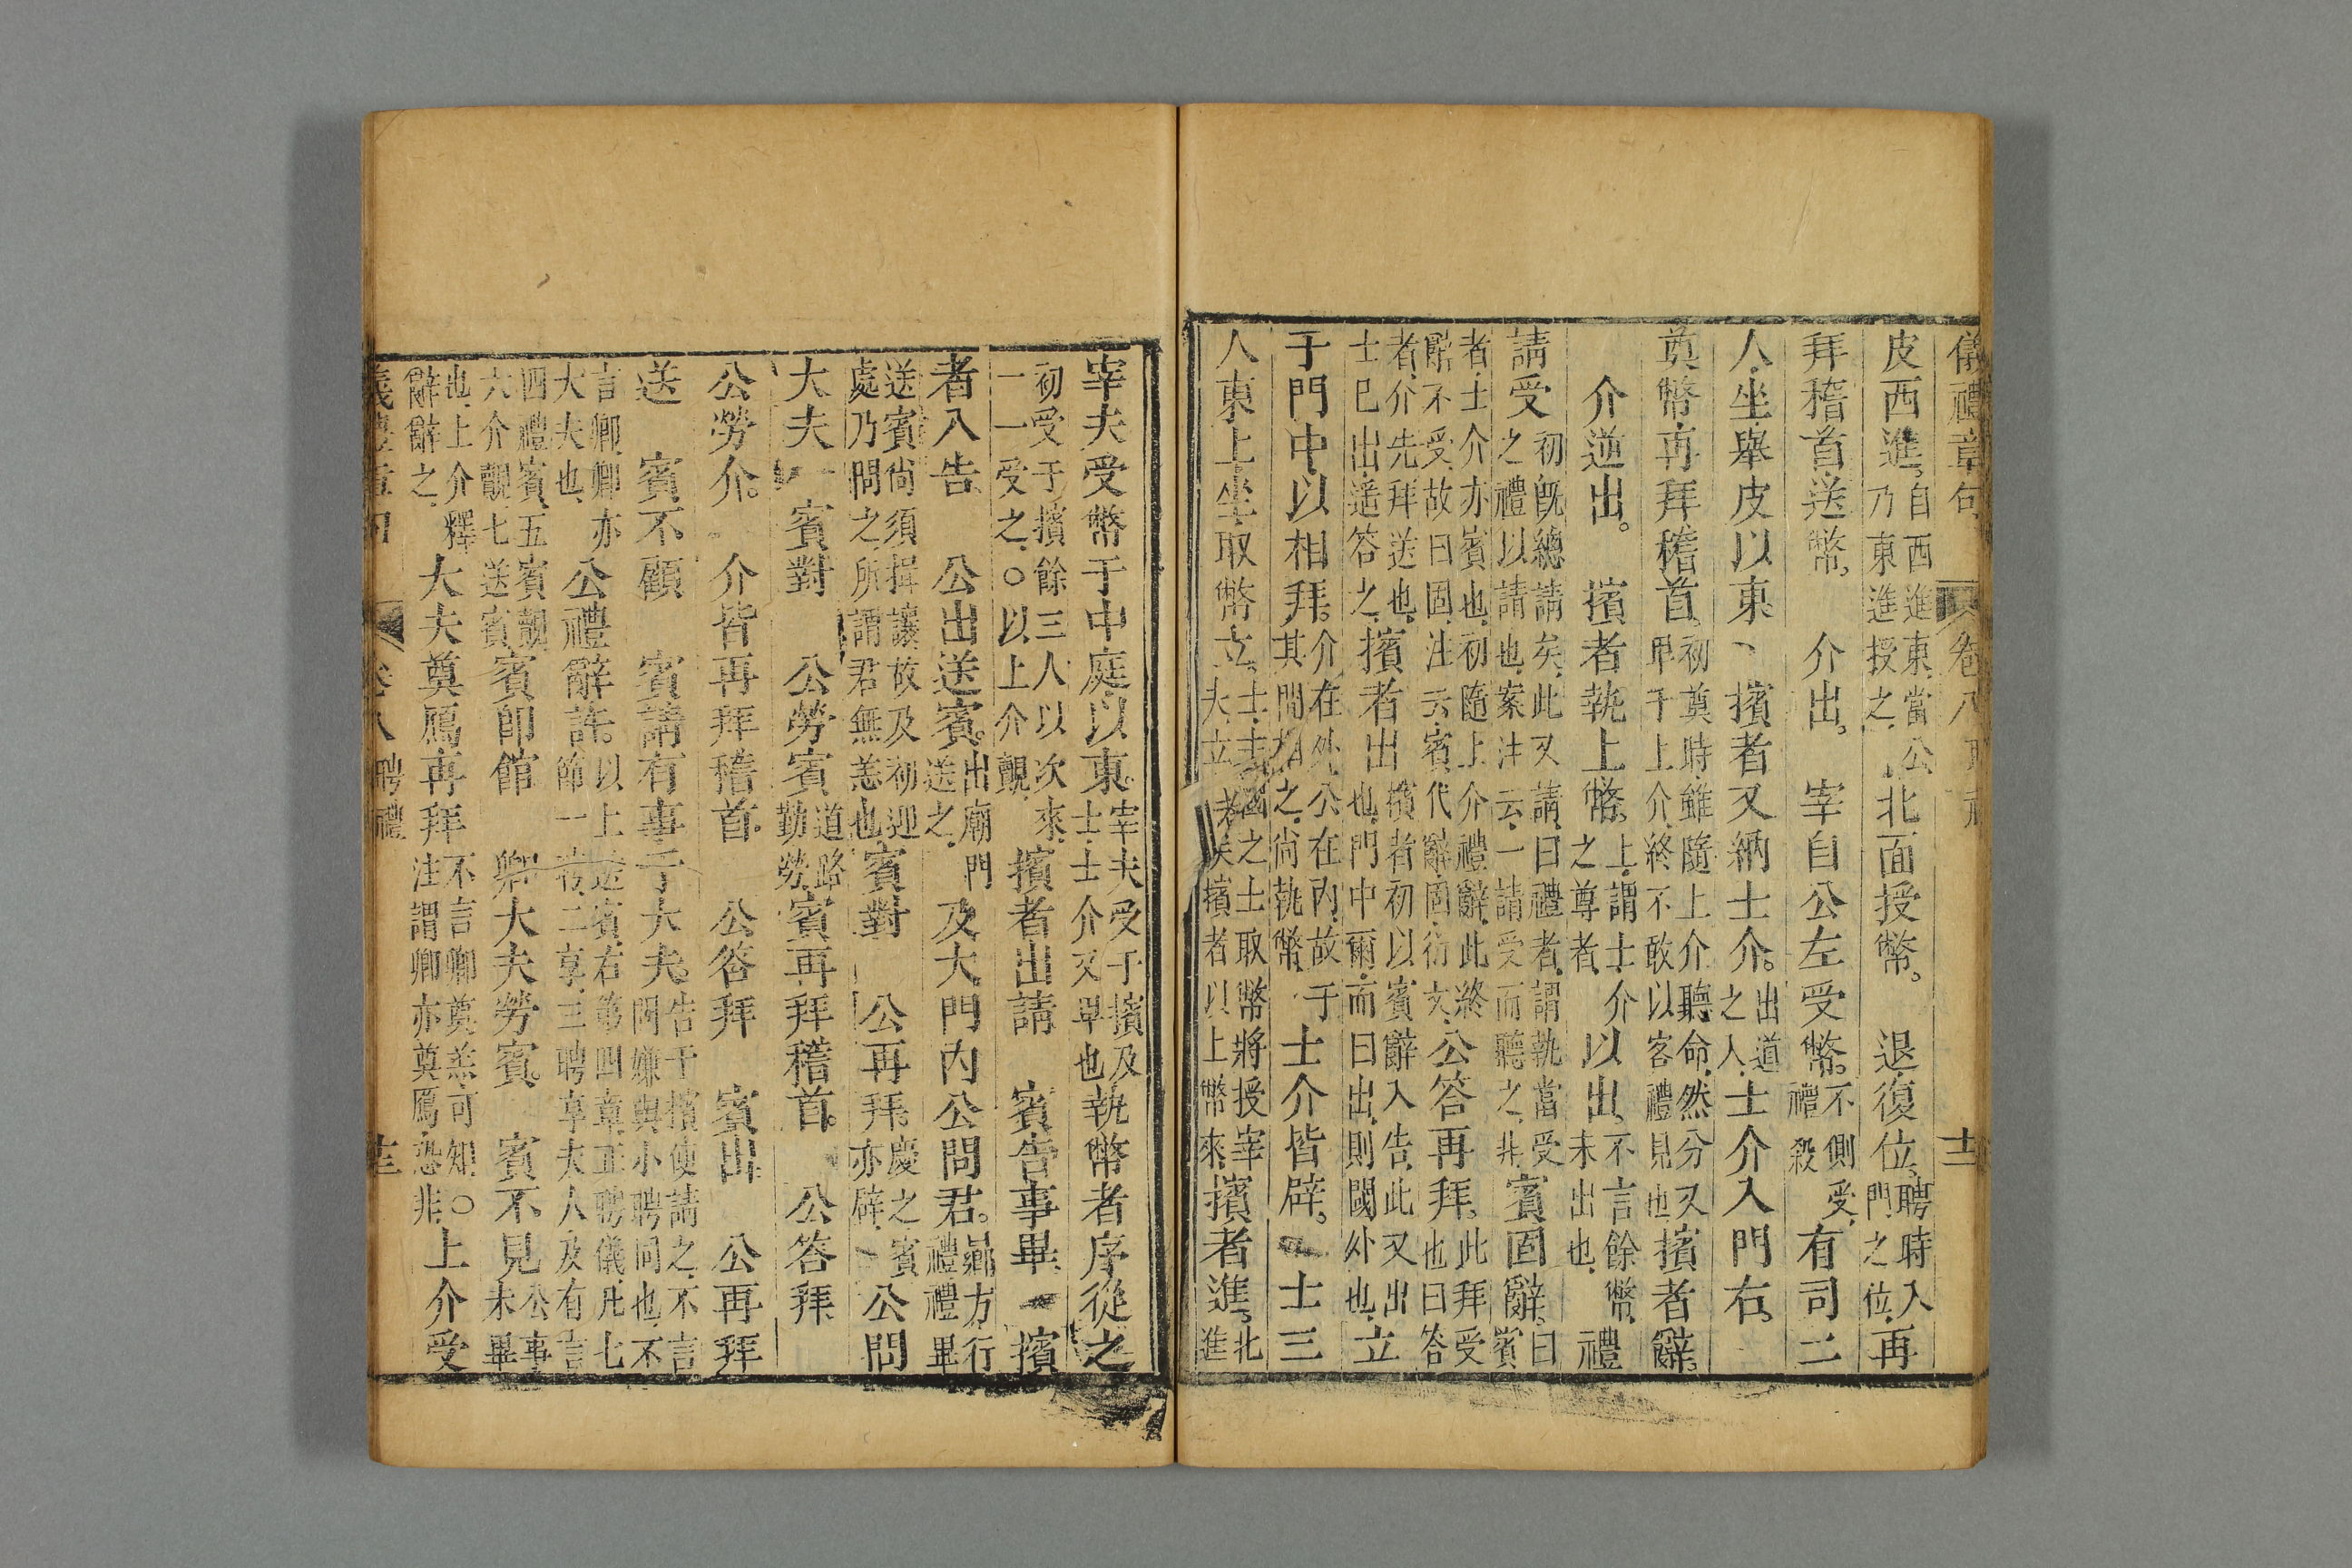 儀禮章句 卷八 十二
皮西進自西進東當公乃東進授之北面授幣退復位聘時入門之位再
拜稽首送幣 介出 宰自公左受幣不側受禮殺 有司二
人坐舉皮以東 擯者又納士介出道之入 士介入門右
奠幣再拜稽首初奠時雖隨上介聽命然分又卑于上介終不敢以客禮見也擯者辭
介逆出 擯者執上幣上謂士介之尊者以出不言餘幣未出也 禮
請受初既總請矣此又請曰禮者謂執當受之禮以請也案注云一請受而聽之非賓固辭曰賓
者士介亦賓也初隨上介禮辭此終辭不受故曰固注云賓代辭固衍文公答再拜此拜受也曰答
者介先拜送也士已出遙答之擯者出擯者初以賓辭入告此又出也門中爾而曰出則闑外也立
于門中以相拜介在外公在內故于其間相之尚執幣 士介皆辟 士三
人東上坐取幣立之士取幣將授宰擯者以上幣來擯者進北進
宰夫受幣于中庭以東宰夫受于擯及士士介又卑也執幣者序從之
初受于擯餘三人以次來一一受之○以上介覿 擯者出請 賓告事畢 擯
者入告 公出送賓出廟門送之及大門內公問君曏方行禮禮畢
送賓尙須揖讓故及初迎處乃問之所謂君無恙也賓對 公再拜慶之賓亦辟 公問
大夫 賓對 公勞賓道路勤勞賓再拜稽首 公答拜
公勞介 介皆再拜稽首 公答拜 賓出 公再拜
送 賓不顧 賓請有事于大夫告于擯使請之不言問嫌與小聘同也不
言卿卿亦大夫也公禮辭許以上送賓右第四章正聘儀凡七節一聘二享三聘享夫人及有言
四禮賓五賓覿六介覿七送賓賓即館 卿大夫勞賓 賓不見公事未畢
也上介釋辭辭之 大夫奠鴈再拜不言卿奠羔可知注謂卿亦奠鴈恐非○上介受
卷八 聘禮 十三